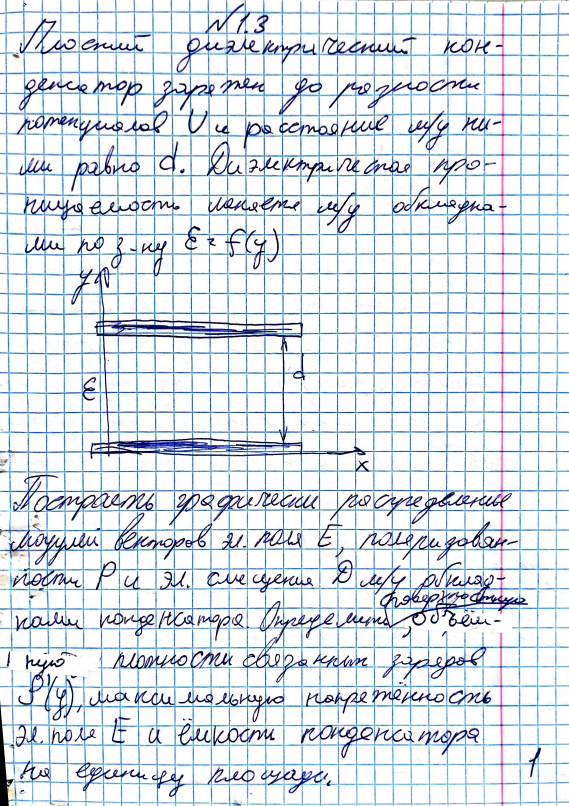 №1.3
Плоский диэлектрический кон-
денсатор заряжен до разности
потенциалов U и расстояние м/у ни-
ми равно d. Диэлектрическая про-
ницаемость меняется м/у обкладка-
ми по з-ну ε = f(y)
y
ε
d
x
Построить графически распределение
модулей векторов эл. поля E, поляризован-
ности P и эл. смещения D м/у обклад-
поверхностную
ками конденсатора. Определить объём-
ную плотности связанных зарядов
ρ'(y), максимальную напряжённость
эл. поля E и ёмкости конденсатора
на единицу площади.
1